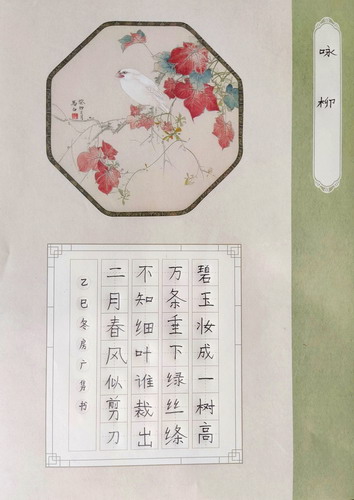 咏柳
碧玉妆成一树高
万条垂下绿丝绦
不知细叶谁裁出
二月春风似剪刀
乙巳冬房广勇书